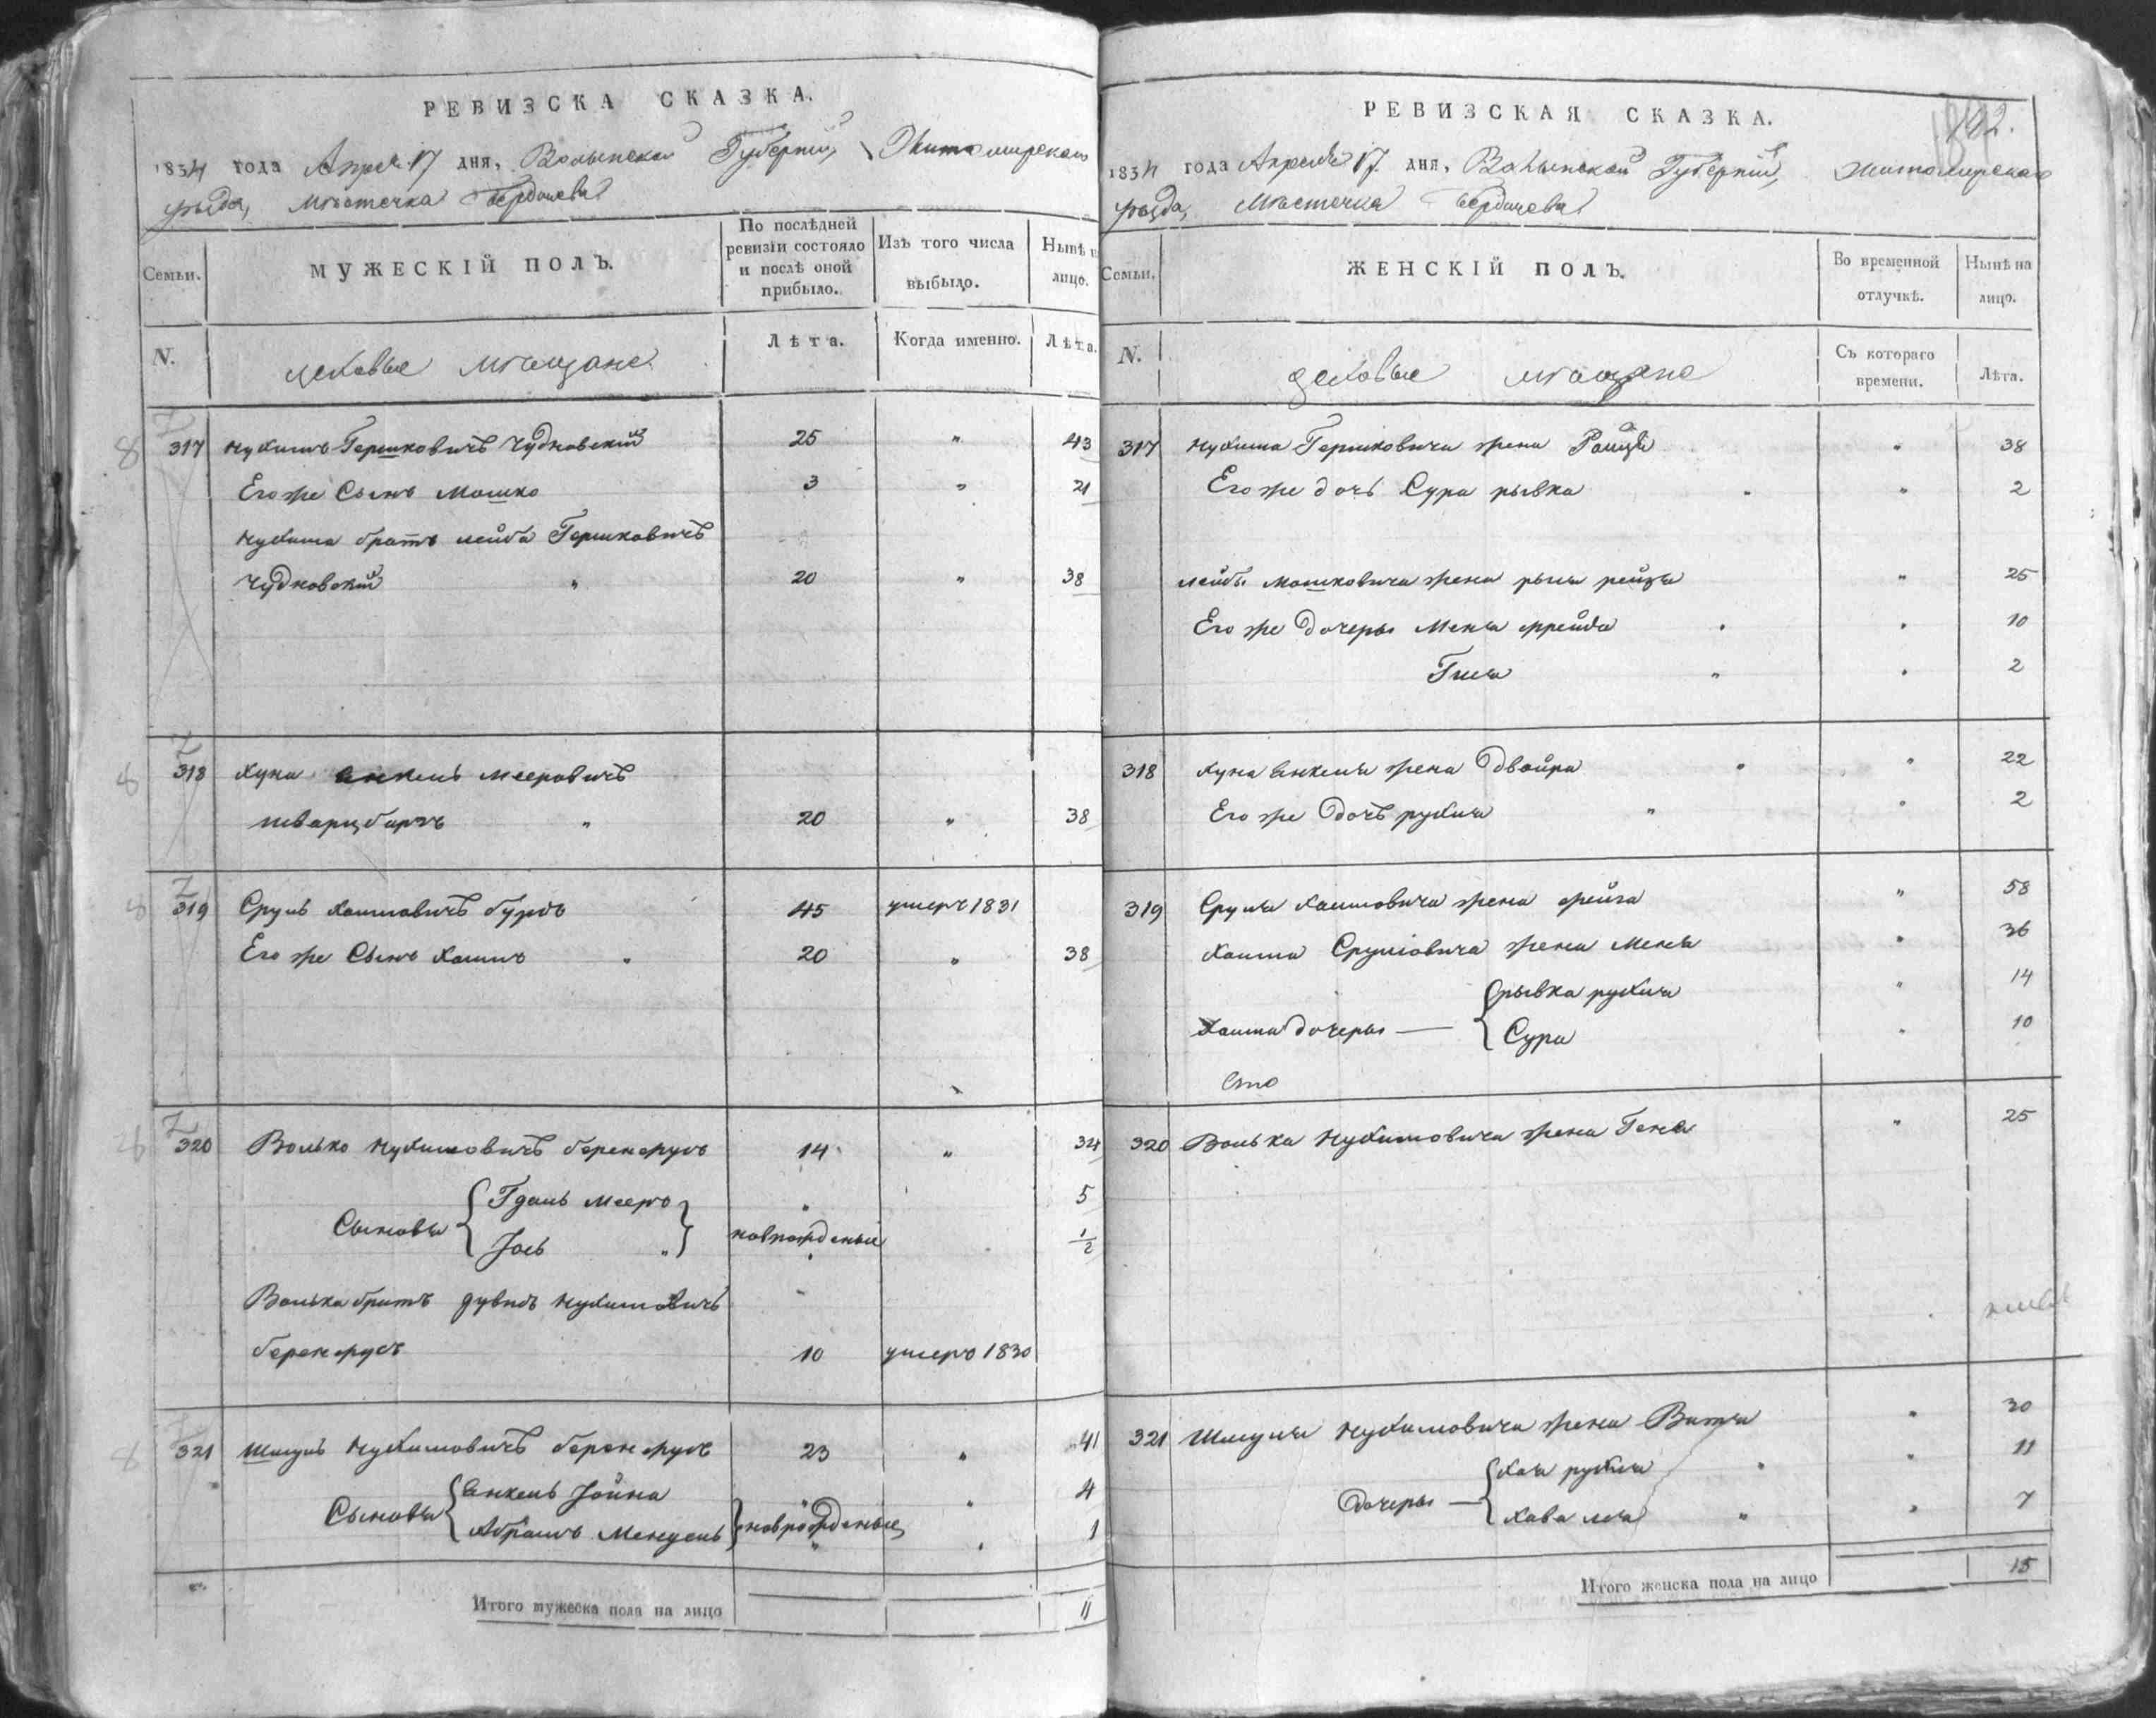 РЕВИЗСКА СКАЗКА.
1834 года Апреля 17 дня, Волынской Губерніи, Житомирскаго
уѣзда, Мѣстечка Бердичева
Семьи. МУЖЕСКІЙ ПОЛЪ. По послѣдней ревизіи состояло и послѣ оной прибыло. Изъ того числа выбыло. Нынѣ на лицо.
N. цеховые мѣщане Лѣта. Когда именно. Лѣта.
317 Нухимъ Гершковичъ Чудновскій 25 " 43
Его же Сынъ Мошко 3 " 21
Нухима братъ лейба Гершковичъ
Чудновскій " 20 " 38
318 Хуна Янкель Мееровичъ
шварцбаргъ " 20 " 38
319 Сруль Хаимовичъ бурдъ 45 умеръ 1831
Его же Сынъ Хаимъ " 20 " 38
320 Волько Нухимовичъ беренфусъ 14 " 32
Сыновья { Гдаль Мееръ } " 5
Іось " новрожденые 1/2
Волька братъ дувидъ Нухимовичъ
беренфусъ 10 умеръ 1830
321 Шмуль Нухимовичъ беренфусъ 23 " 41
Сыновья { Янкель Іойна } " 4
Абрамъ Мендель новрожденые " 1
Итого мужеска пола на лицо 11
РЕВИЗСКАЯ СКАЗКА.
1834 года Апреля 17 дня, Волынской Губерніи, Житомирскаго
уѣзда, Мѣстечка Бердичева
Семьи. ЖЕНСКІЙ ПОЛЪ. Во временной отлучкѣ. Нынѣ на лицо.
N. цеховые мѣщане Съ котораго времени. Лѣта.
317 Нухима Гершковича жена " 38
Его же дочь Сура рывка " " 2
лейбы Мошковича жена рыся рейзя " 25
Его же дочеры Меня фрейда " " 10
Гися " " 2
318 Хуна Янкеля жена Двойра " " 22
Его же дочъ рухля " " 2
319 Сруля Хаимовича жена фейга " 58
Хаима Срулiовича жена Меня " 36
Хаима дочеры — { рывка рухля " 14
Сура " 10
320 Волька Нухимовича жена Геня " 25
321 Шмуля Нухимовича жена Витя " 30
Дочеры — { Хая рухля " " 11
Хава лея " " 7
Итого женска пола на лицо 15